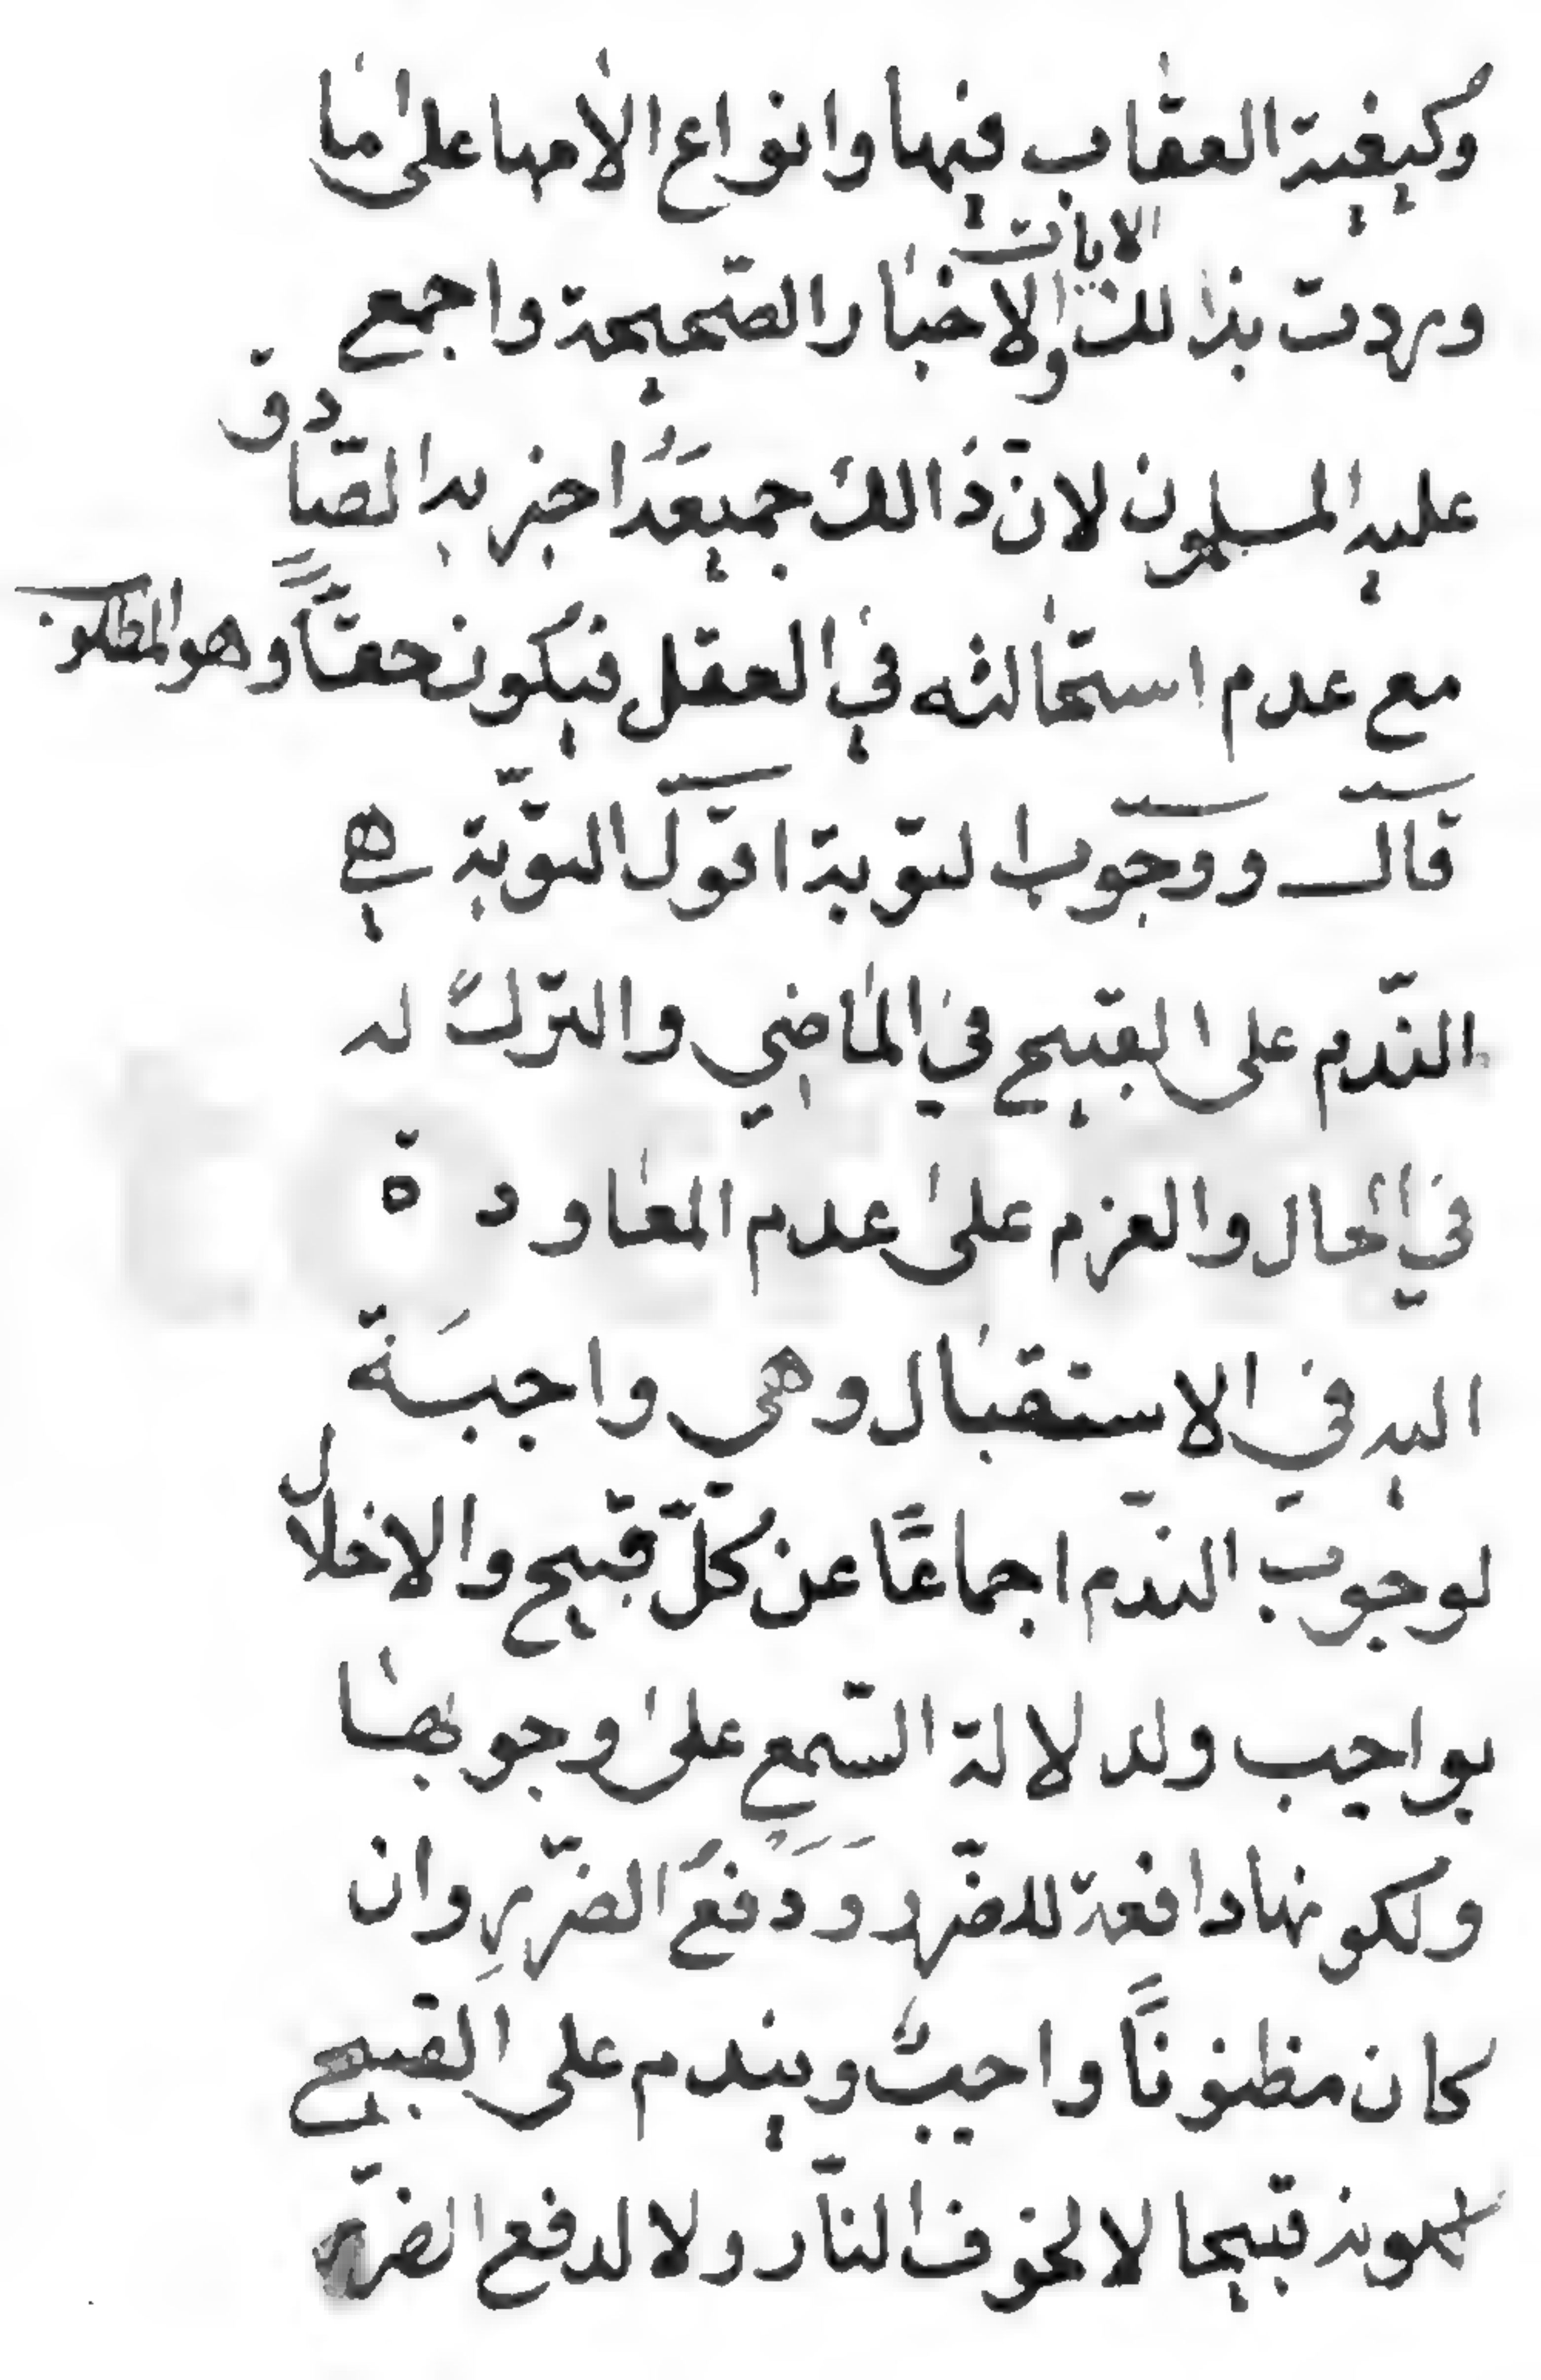 وكيفية العقاب فيها وانواع الامها على ما
وردت بذالك الايات والاخبار الصحيحة واجمع
عليه المسلمون لان ذالك جميعه اخبر به الصادق
مع عدم استحالته في العقل فيكون حقاً وهو المطلوب
قال ووجوب التوبة اقول التوبة هي
الندم على القبيح في الماضي والترك له
في الحال والعزم على عدم المعاودة
اليه في الاستقبال وهي واجبة
لوجوب الندم اجماعًا عن كلّ قبيح والاخلال
بواجب ولدلالة السّمع على وجوبها
ولكونها دافعة للضّرر ودفع الضّرر وان
كان مظنونًا واجبٌ ويندم على القبيح
لكونه قبيحا لا لخوف النّار ولا لدفع الضّرر